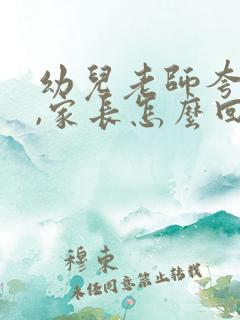 幼兒老師夸
,家長怎麼回
穆東
未經同意禁止轉載